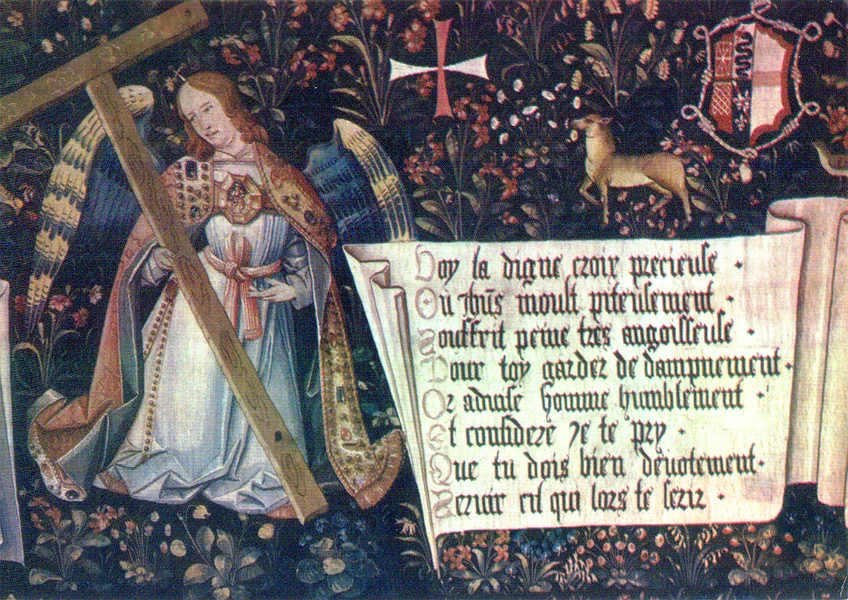 Voy la digne croix precieuse ·
Où Jhũs moult piteusement ·
Souffrit peine tres angoisseuse ·
Pour toy garder de dampnement ·
Or aduise homme humblement ·
Et considere Je te pry ·
Que tu dois bien deuotement ·
Seruir cil qui lors te seruit ·